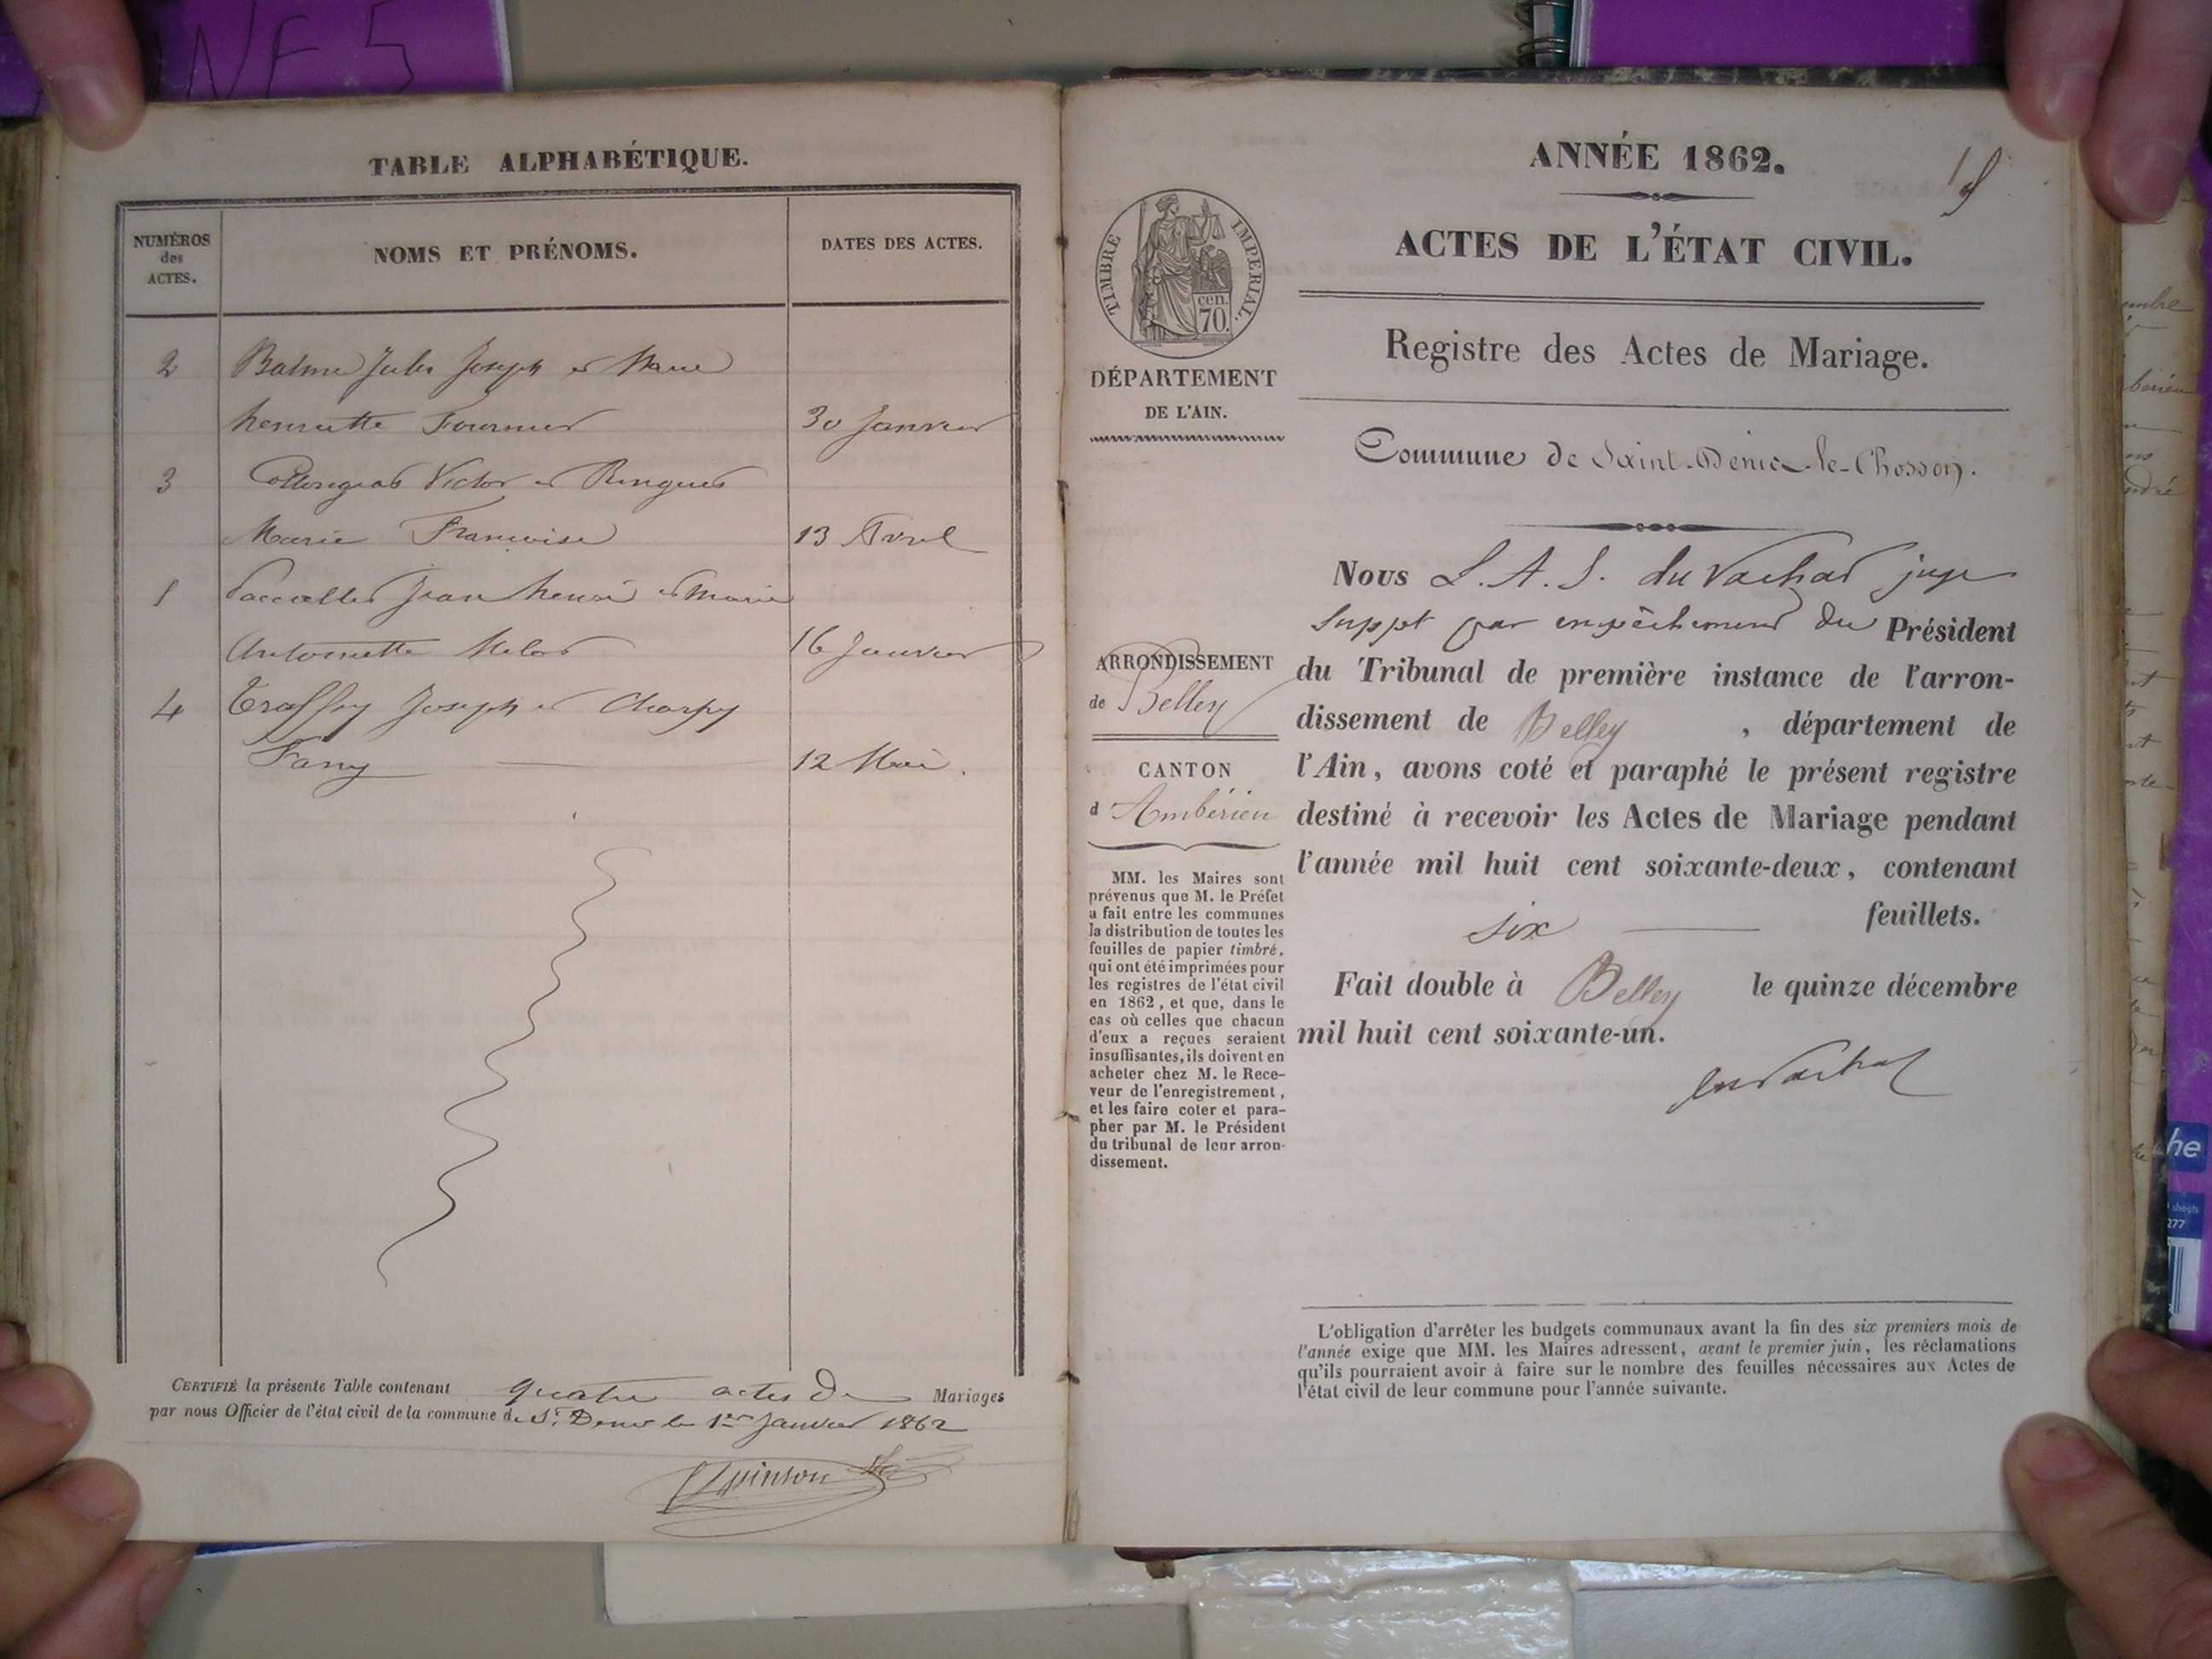 NF 5
TABLE ALPHABÉTIQUE.
NUMÉROS
des
ACTES.
NOMS ET PRÉNOMS.
DATES DES ACTES.
2 Balme Jules Joseph et Marie
henriette Fournier 30 Janvier
3 Victor et
Marie Francoise 13 Avril
1 Jean henri et Marie
Antoinette 16 Janvier
4 Joseph et Charpy
Fany 12 Mai.
CERTIFIÉ la présente Table contenant quatre actes de Mariages
par nous Officier de l'état civil de la commune de St. Denis le 1er Janvier 1862
ANNÉE 1862.
ACTES DE L'ÉTAT CIVIL.
Registre des Actes de Mariage.
TIMBRE IMPERIAL.
cen.
70.
DÉPARTEMENT
DE L'AIN.
Commune de Saint-Denis-le-Chosson.
Nous L. A. S. du Vachat juge
Suppt par empêchement du Président
du Tribunal de première instance de l'arron-
dissement de Belley , département de
l'Ain, avons coté et paraphé le présent registre
destiné à recevoir les Actes de Mariage pendant
l'année mil huit cent soixante-deux, contenant
six feuillets.
Fait double à Belley le quinze décembre
mil huit cent soixante-un.
du Vachat
ARRONDISSEMENT
de Belley
CANTON
d'Ambérieu
MM. les Maires sont
prévenus que M. le Préfet
a fait entre les communes
la distribution de toutes les
feuilles de papier timbré,
qui ont été imprimées pour
les registres de l'état civil
en 1862, et que, dans le
cas où celles que chacun
d'eux a reçues seraient
insuffisantes, ils doivent en
acheter chez M. le Rece-
veur de l'enregistrement,
et les faire coter et para-
pher par M. le Président
du tribunal de leur arron-
dissement.
L'obligation d'arrêter les budgets communaux avant la fin des six premiers mois de
l'année exige que MM. les Maires adressent, avant le premier juin, les réclamations
qu'ils pourraient avoir à faire sur le nombre des feuilles nécessaires aux Actes de
l'état civil de leur commune pour l'année suivante.
he
sheets
277